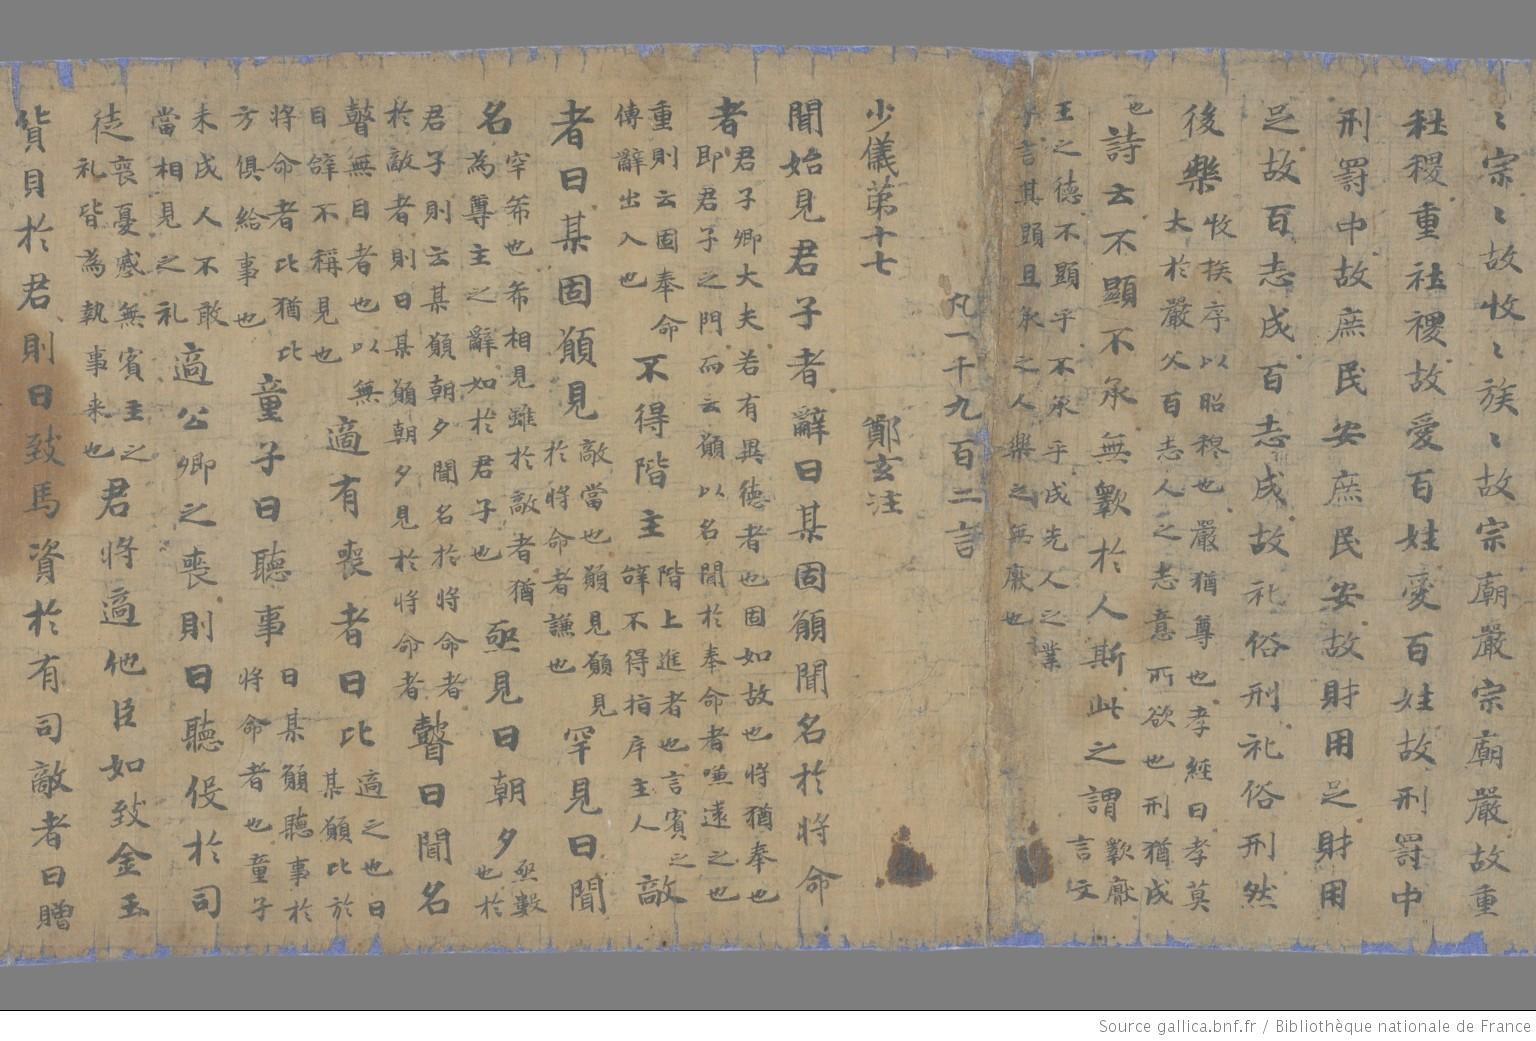 〻宗〻故收〻族〻故宗廟嚴宗廟嚴故重
社稷重社稷故愛百姓愛百姓故刑罰中
刑罰中故庶民安庶民安故財用足財用
足故百志成百志成故礼俗刑礼俗刑然
後樂
收族序以昭穆也嚴猶尊也孝經曰孝莫
大於嚴父百志人之志意所欲也刑猶成
也
詩云不顯不承無斁於人斯此之謂
斁厭
言文
王之德不顯乎不承乎成先人之業
乎言其顕且承之人樂之無厭也
凡一千九百二言
少儀第十七 鄭玄注
聞始見君子者辭曰某固願聞名於將命
者
君子卿大夫若有異德者也固如故也將猶奉也
即君子之門而云願以名聞於奉命者嗛遠之也
重則云固奉命
傳辭出入也
不得階主
階上進者也言賓之
辝不得指斥主人
敵
者曰某固願見
敵當也願見願見
於將命者謙也
罕見曰聞
名
罕希也希相見雖於敵者猶
為尊主之辭如於君子也
亟見曰朝夕
亟數
也於
君子則云某願朝夕聞名於將命者
於敵者則曰某願朝夕見於將命者
瞽曰聞名
瞽無目者也以無
目辝不稱見也
適有喪者曰比
適之也曰
某願比於
將命者比猶比
方俱給事也
童子曰聽事
曰某願聽事於
將命者也童子
未成人不敢
當相見之礼
適公卿之喪則曰聽役於司
徒
喪憂慼無賓主之
礼皆為執事来也
君將適他臣如致金玉
貨貝於君則曰致馬資於有司敵者曰贈
Source gallica.bnf.fr / Bibliothèque nationale de France